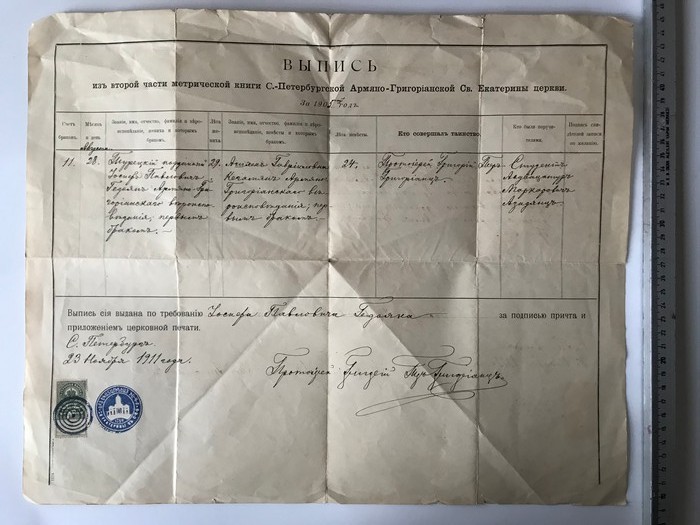 ВЫПИСЬ
изъ второй части метрической книги С.-Петербургской Армяно-Григоріанской Св. Екатерины церкви.
За 190 годъ.
Счетъ браковъ.
Мѣсяцъ и день.
Званіе, имя, отчество, фамилія и вѣроисповѣданіе, жениха и которымъ бракомъ.
Лѣта жениха.
Званіе, имя, отчество, фамилія и вѣроисповѣданіе, невѣсты и которымъ бракомъ.
Лѣта невѣсты.
Кто совершалъ таинство.
Кто были поручители.
Августъ
11.
28.
Турецкій подданный
Іосифъ Павловичъ
Армяно-Гри-
горіанскаго вѣроиспо-
вѣданія, первымъ
бракомъ. —
29.
Армяно
Григоріанскаго вѣ-
роисповѣданія; пер-
вымъ бракомъ.
24.
Протоіерей Григорій Теръ
Григоріанцъ.
Студентъ
Маркаровичъ
Выпись сія выдана по требованію Іосифа Павловича за подписью причта и
приложеніемъ церковной печати.
С. Петербургъ
23 Ноября 1911 года.
Протоіерей Григорій Теръ Григоріанцъ